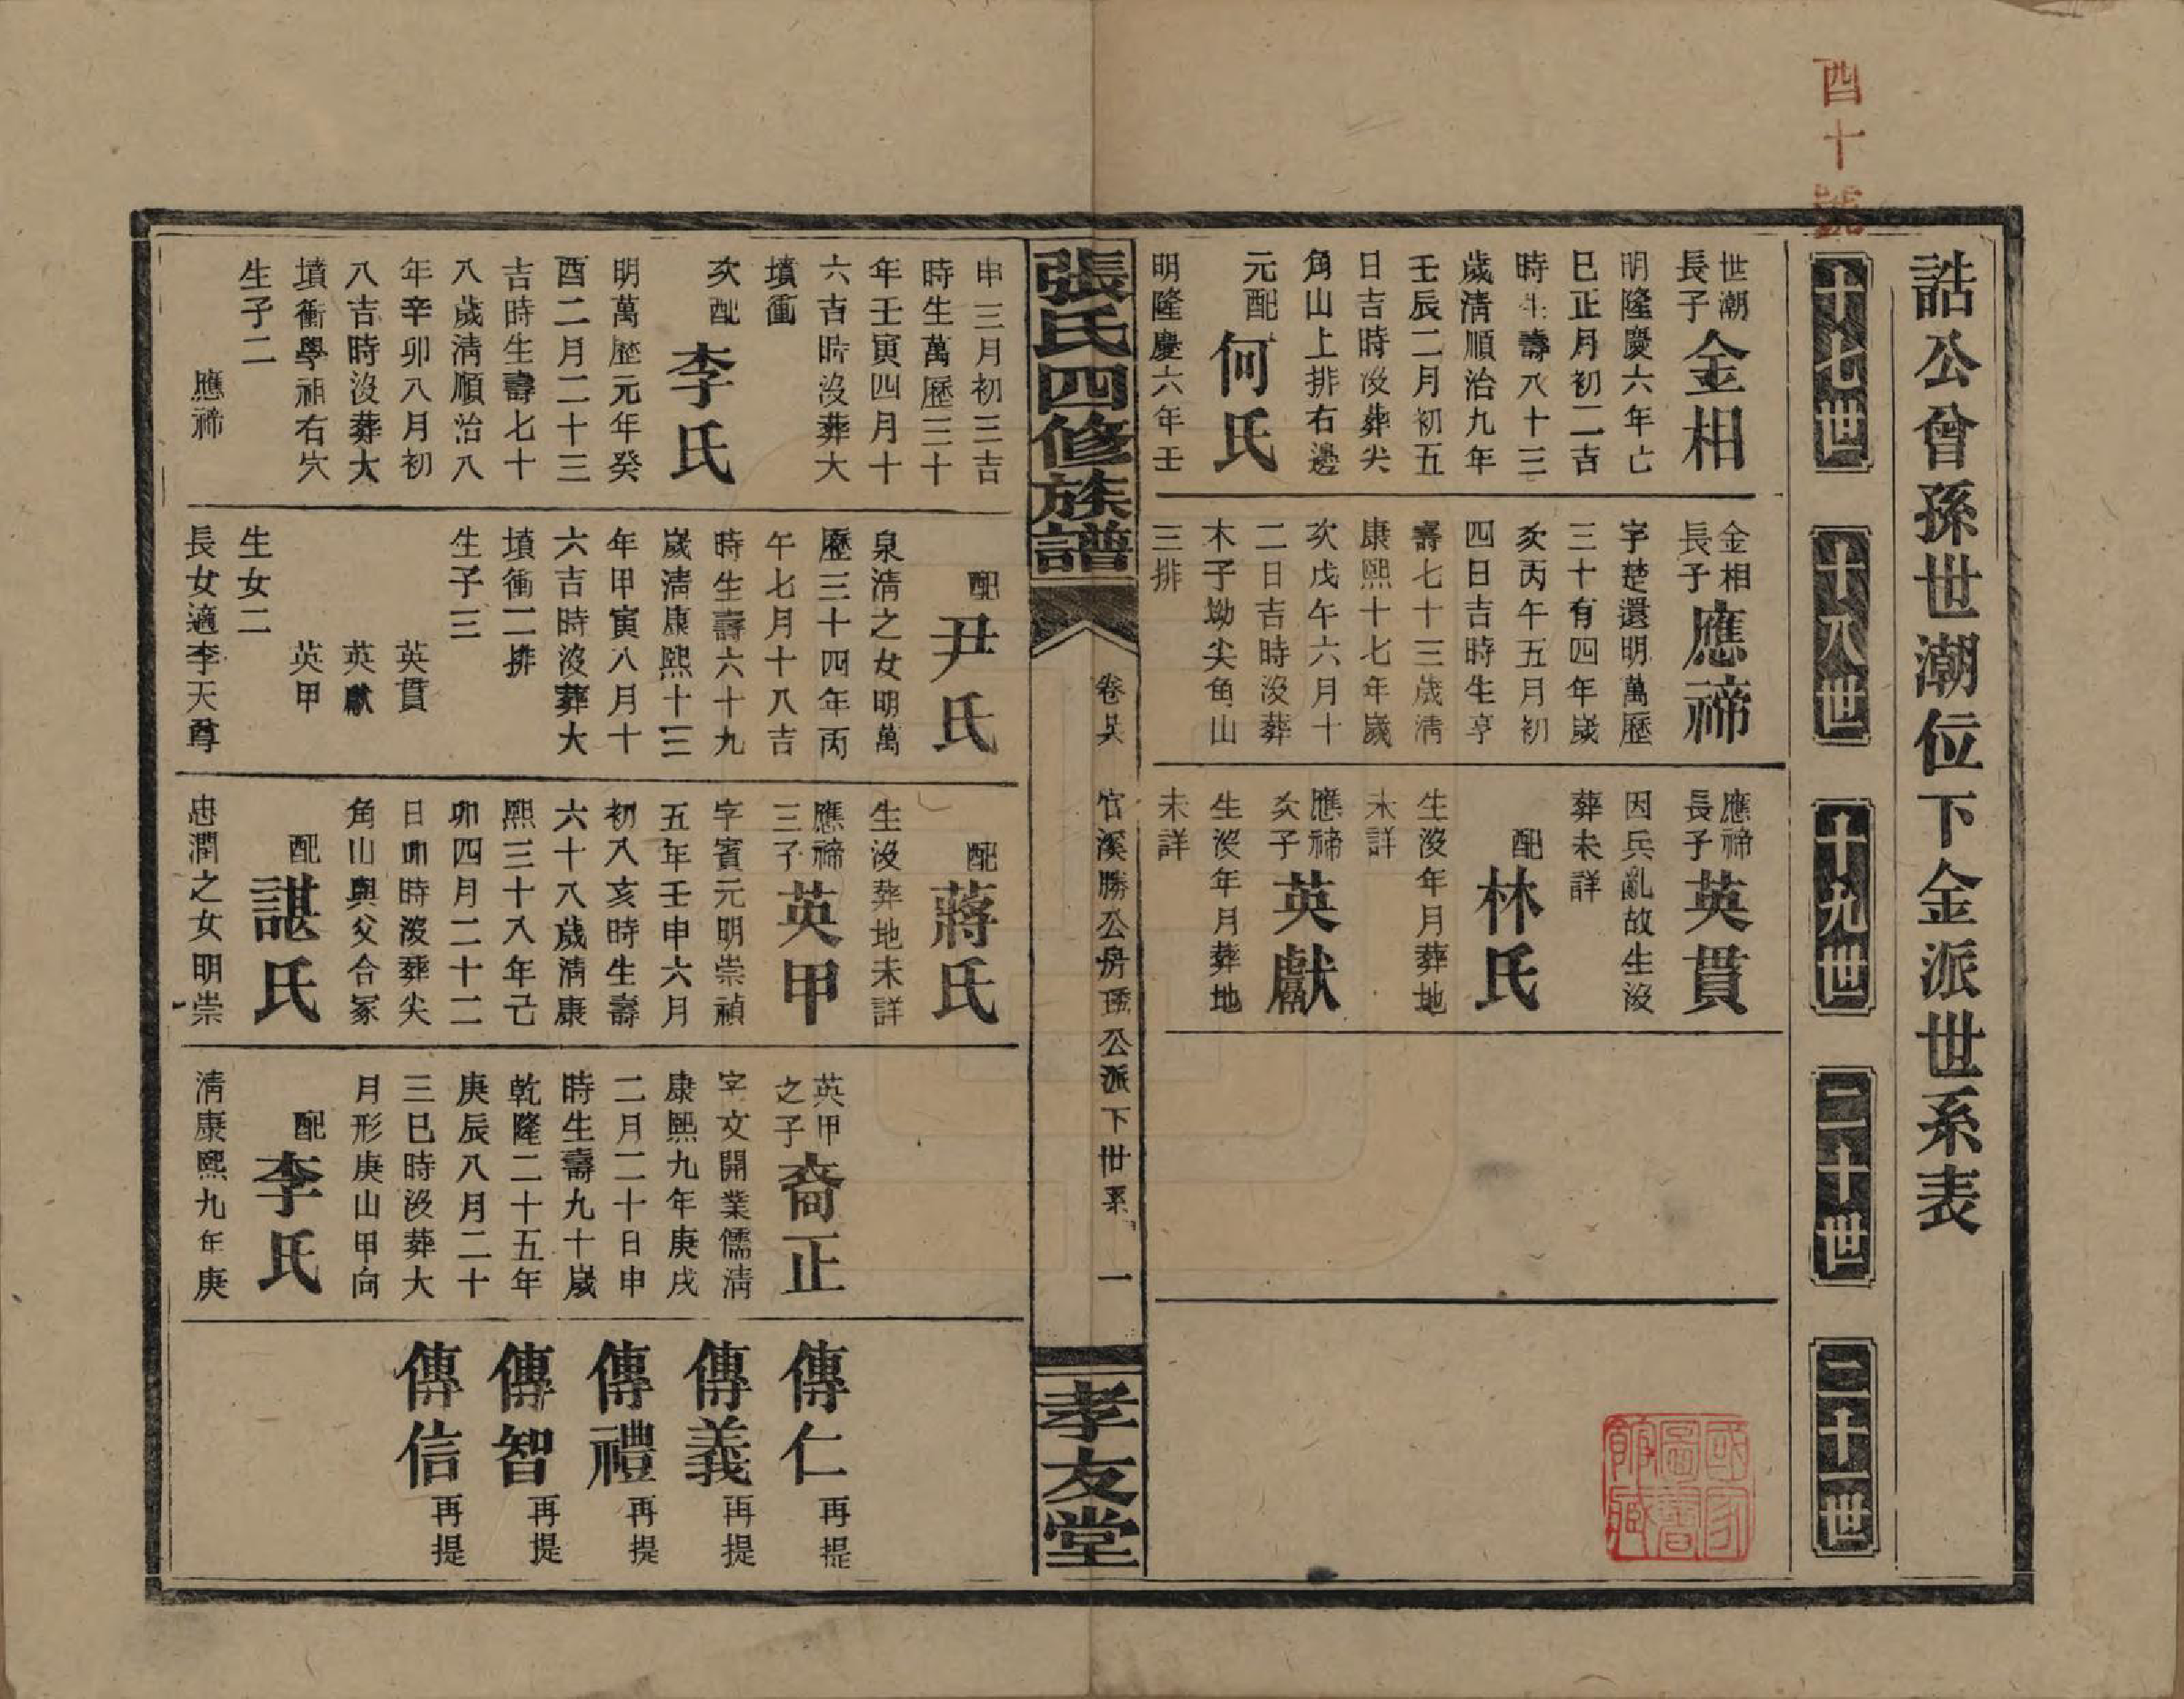 四十號
誥公曾孫世潮位下金派世系表
十七世
十八世
十九世
二十世
二十一世
世潮
長子
金相
明隆慶六年亡
巳正月初二吉
時生壽八十三
歲淸順治九年
壬辰二月初五
日吉時沒葬尖
角山上排右邊
元配
何氏
明隆慶六年壬
金相
長子
應禘
字楚還明萬歷
三十有四年歲
亥丙午五月初
四日吉時生享
壽七十三歲淸
康熙十七年歲
次戊午六月十
二日吉時沒葬
木子坳尖角山
三排
應禘
長子
英貫
因兵亂故生沒
葬未詳
配
林氏
生沒年月葬地
未詳
應禘
次子
英獻
生沒年月葬地
未詳
國家圖書館藏
張氏四修族譜
官溪勝公房
公派下世系
一
孝友堂
申三月初三吉
時生萬歷三十
年壬寅四月十
六吉時沒葬大
墳衝
次配
李氏
明萬歷元年癸
酉二月二十三
吉時生壽七十
八歲淸順治八
年辛卯八月初
八吉時沒葬大
墳衝學祖右穴
生子二
應禘
配
尹氏
泉淸之女明萬
歷三十四年丙
午七月十八吉
時生壽六十九
歲淸康熙十三
年甲寅八月十
六吉時沒葬大
墳衝二排
生子三
英貫
英獻
英甲
生女二
長女適李天尊
配
蔣氏
生沒葬地未詳
應禘
三子
英甲
字賓元明崇禎
五年壬申六月
初八亥時生壽
六十八歲淸康
熙三十八年己
卯四月二十二
日卯時沒葬尖
角山與父合冢
配
諶氏
忠潤之女明崇
英甲
之子
裔正
字文開業儒淸
康熙九年庚戌
二月二十日申
時生壽九十歲
乾隆二十五年
庚辰八月二十
三巳時沒葬大
月形庚山甲向
配
李氏
淸康熙九年庚
傳仁 再提
傳義 再提
傳禮 再提
傳智 再提
傳信 再提